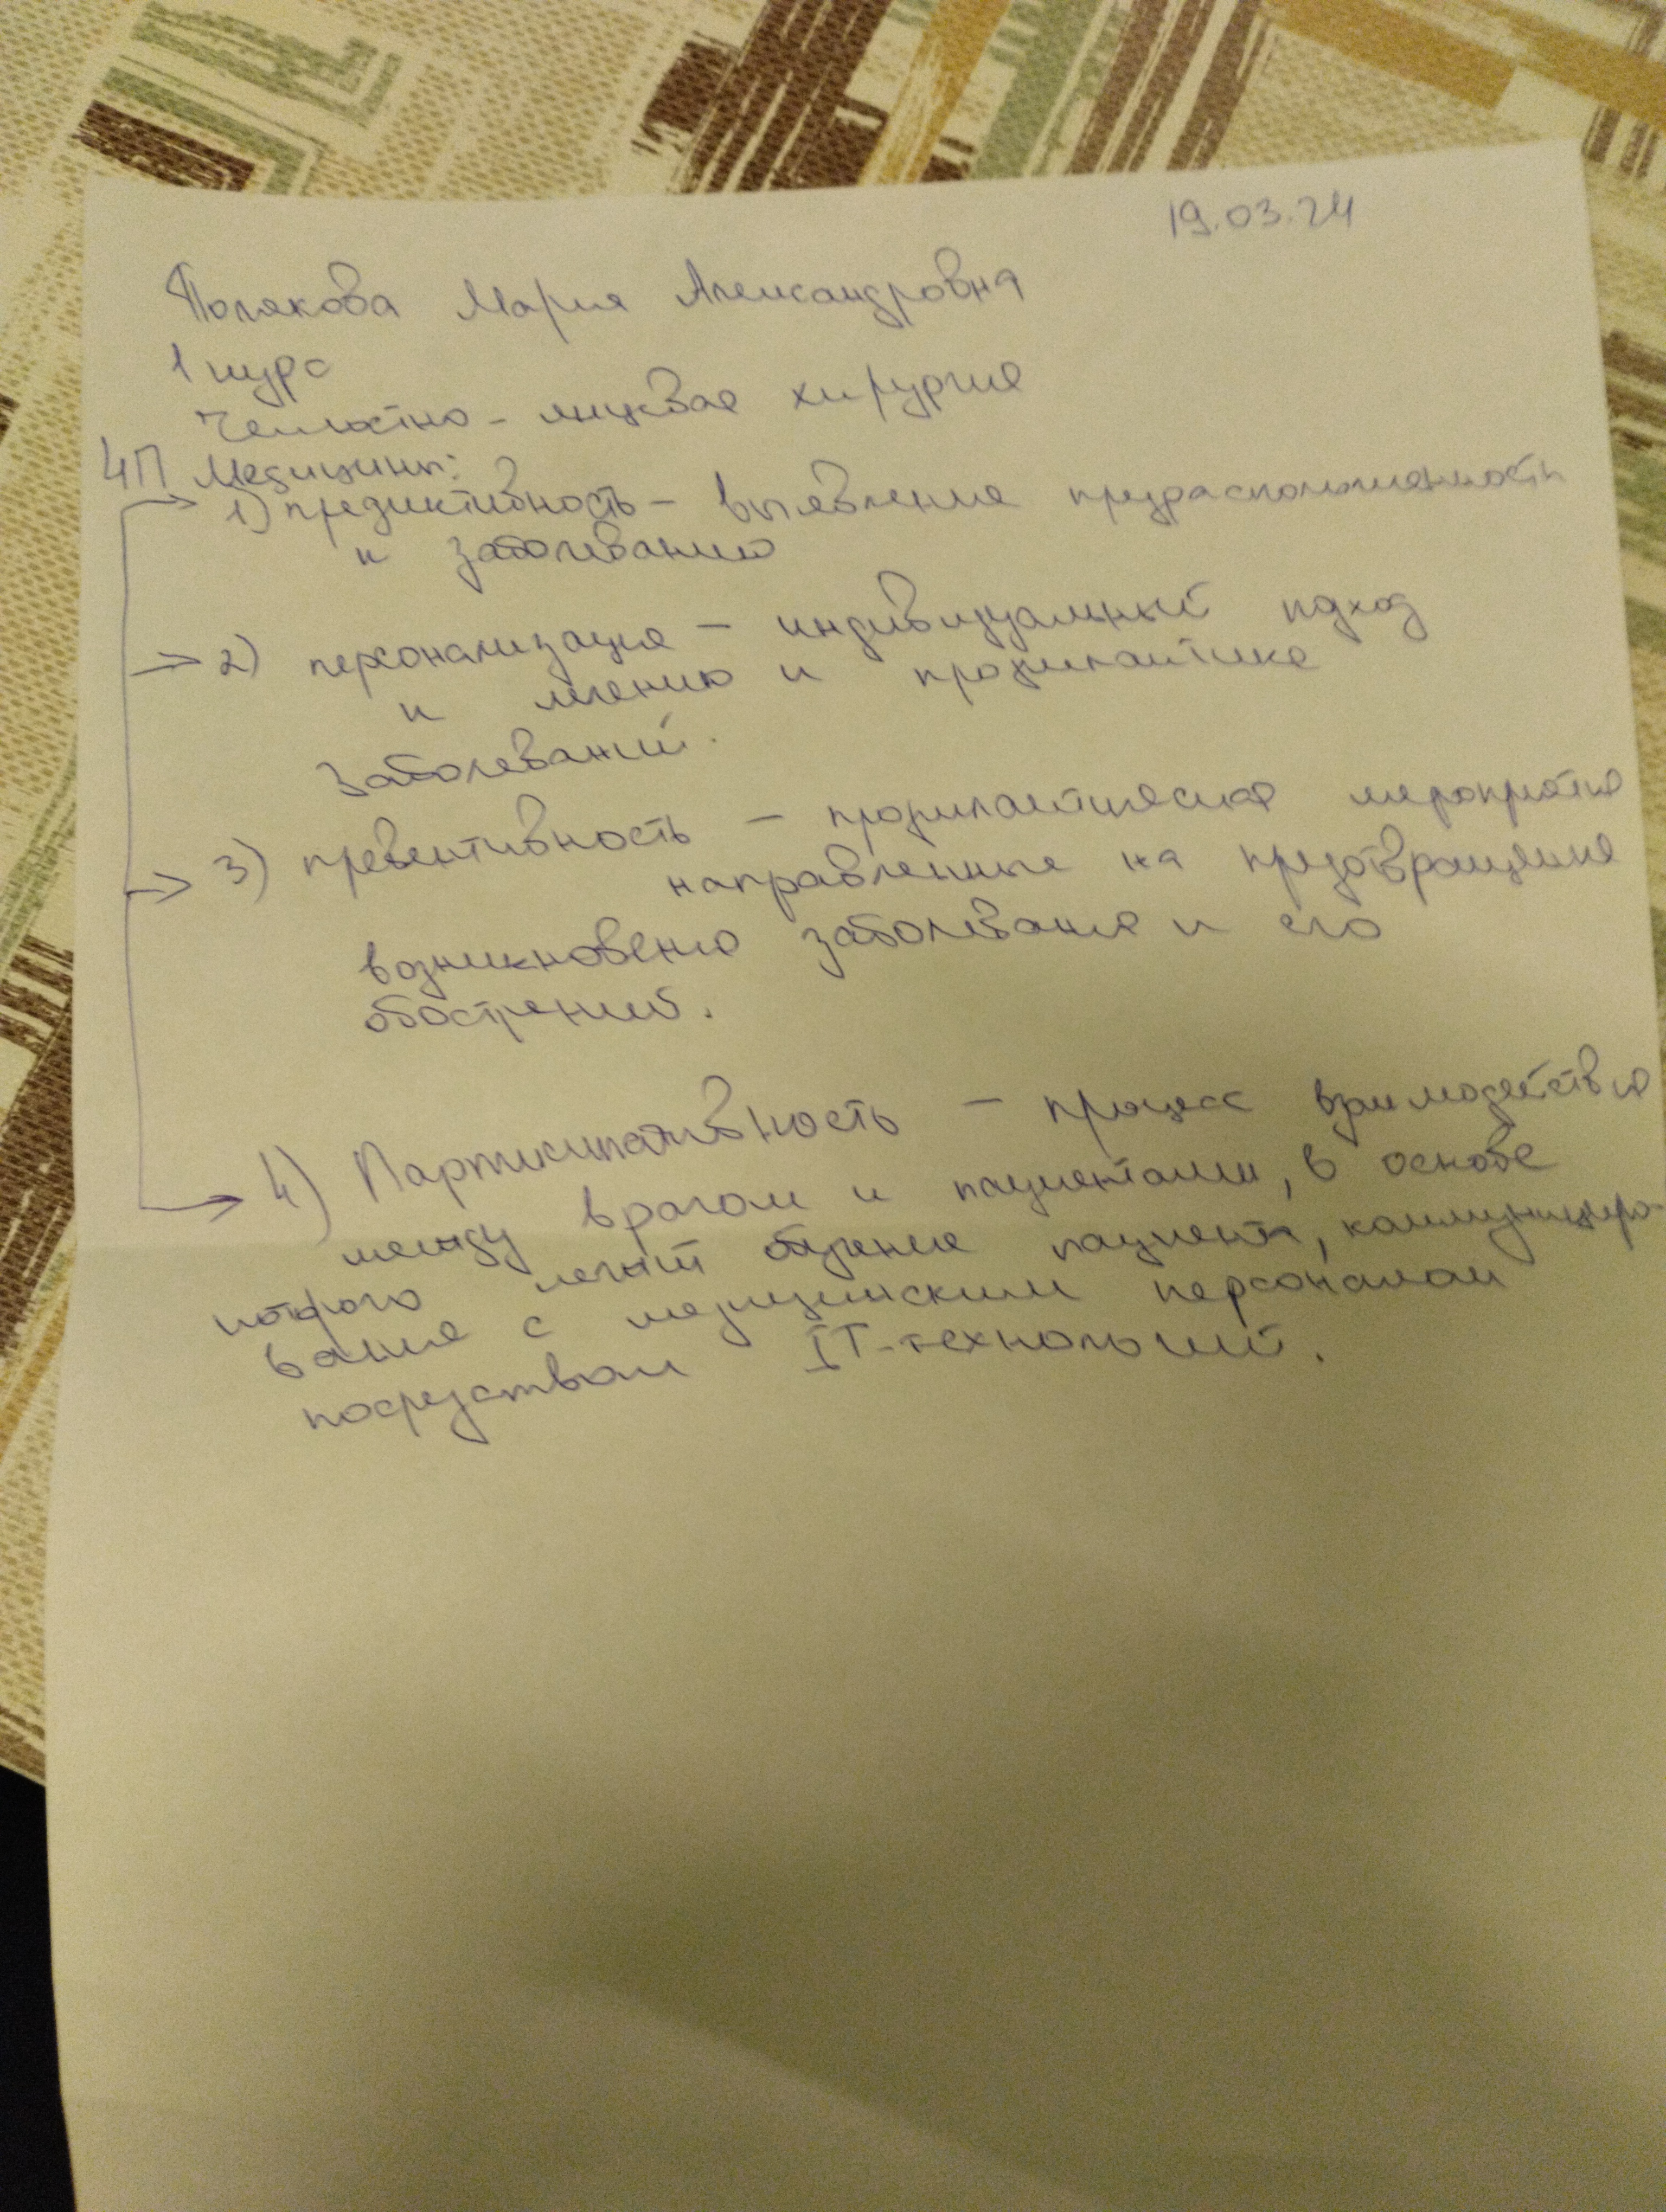 19.03.24
Полякова Мария Александровна
1 курс
Челюстно-лицевая хирургия
4П Медицины:
1) предиктивность – выявление предрасположенности
к заболеванию
2) персонализация – индивидуальный подход
к лечению и профилактике
заболеваний.
3) превентивность – профилактические мероприятия
направленные на предотвращение
возникновения заболевания и его
обострений.
4) Партисипативность – процесс взаимодействия
между врачом и пациентами, в основе
которого лежит обучение пациента, коммунициро-
вание с медицинским персоналом
посредством IT-технологий.